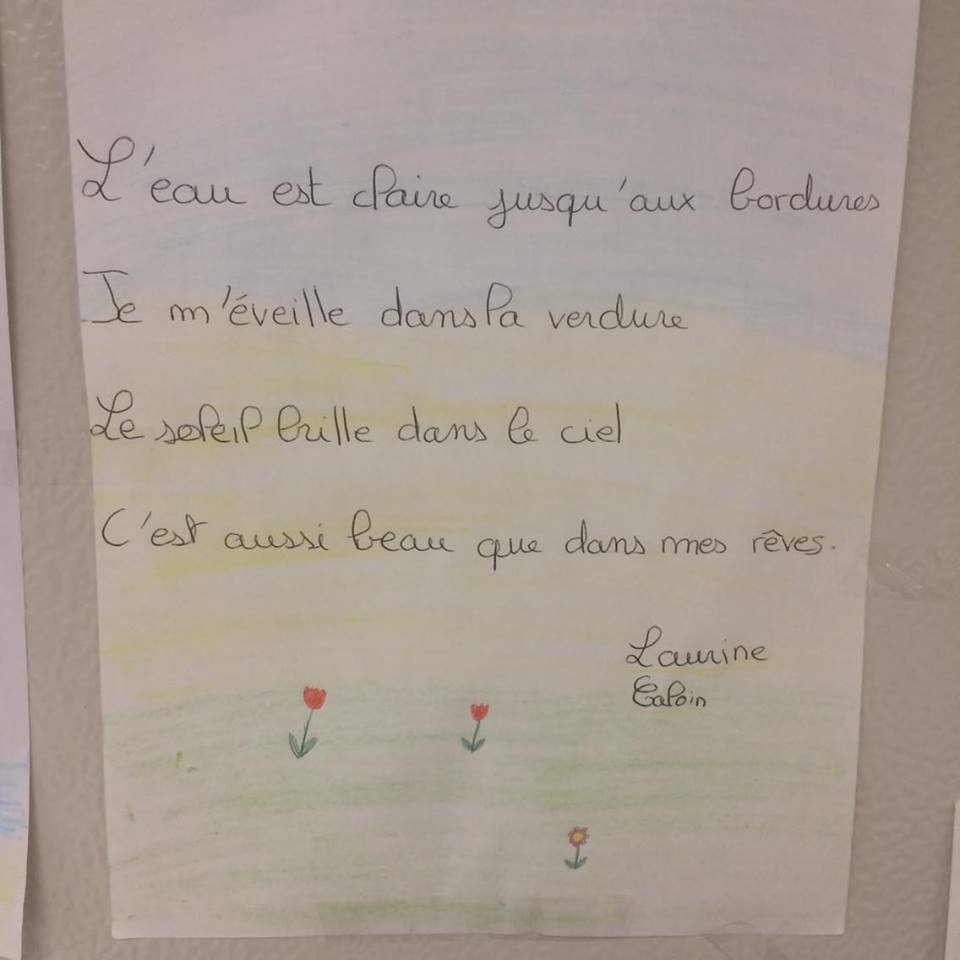 L'eau est claire jusqu'aux bordures
Je m'éveille dans la verdure
Le soleil brille dans le ciel
C'est aussi beau que dans mes rêves.
Laurine